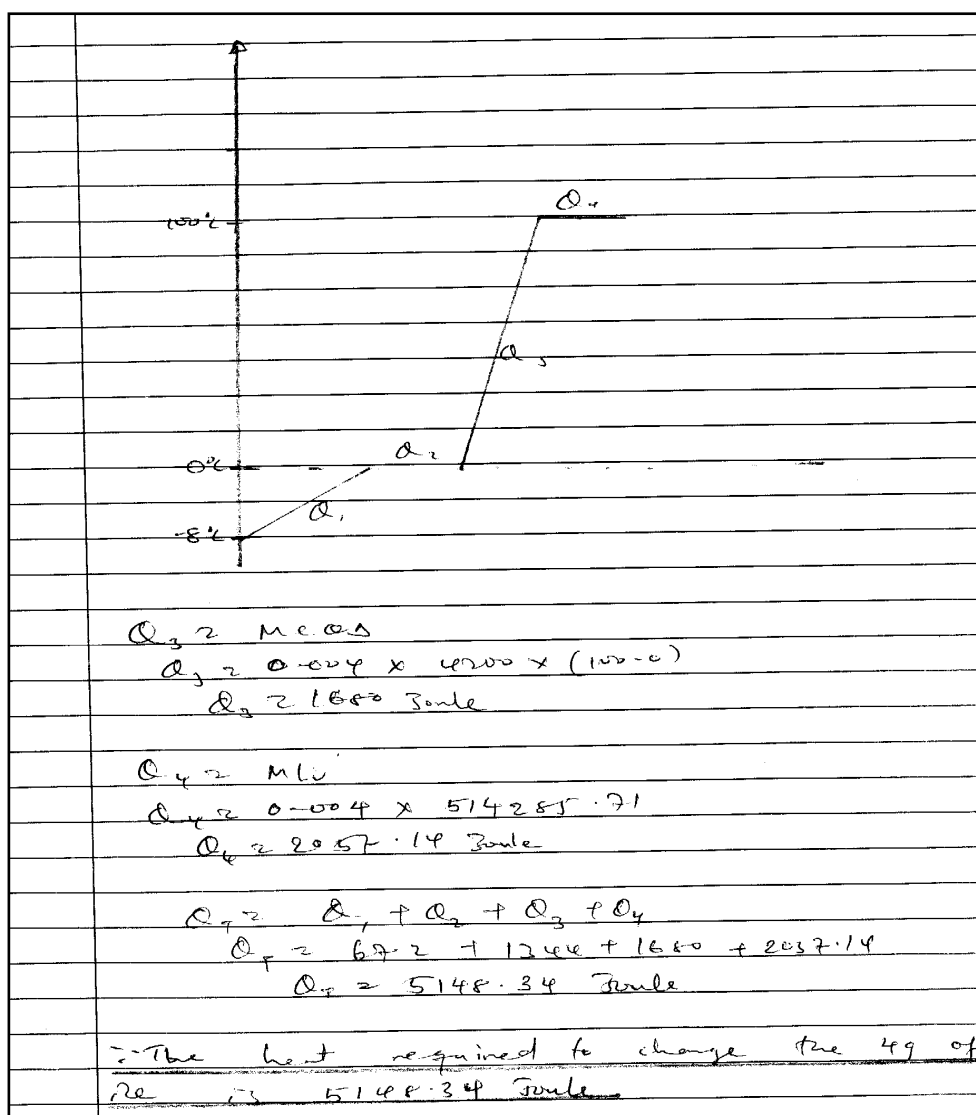 Q4
100°C
Q3
0°C
Q2
Q1
-8°C
Q3 = Mcθs
Q3 = 0.004 x 4200 x (100-0)
Q3 = 1680 Joule
Q4 = MLv
Q4 = 0.004 x 514285.71
Q4 = 2057.14 Joule
QT = Q1 + Q2 + Q3 + Q4
QT = 67.2 + 1344 + 1680 + 2057.14
QT = 5148.34 Joule
∴ The heat required to change the 4g of
ice is 5148.34 Joule